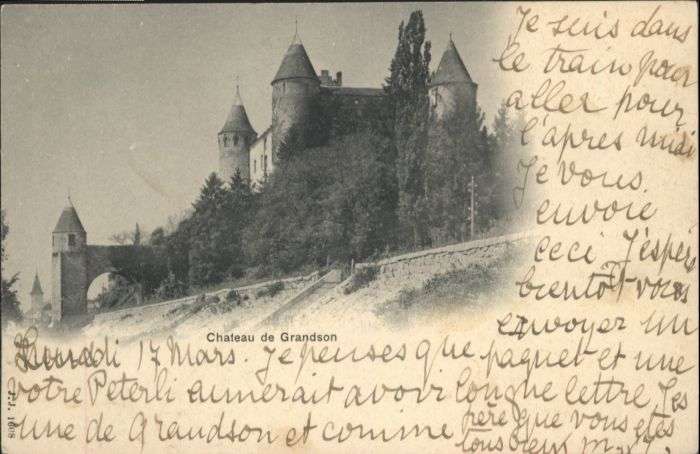 Je suis dans
le train pour
aller pour
l'après midi
Je vous
envoie
ceci. J'espère
bientôt vous
envoyer un
Château de Grandson
Lundi 17 Mars. Je penses que paquet et une
votre Peterli aimerait avoir longue lettre. J'es
une de Grandson et comme père que vous êtes
tous bien
J.J. 1098